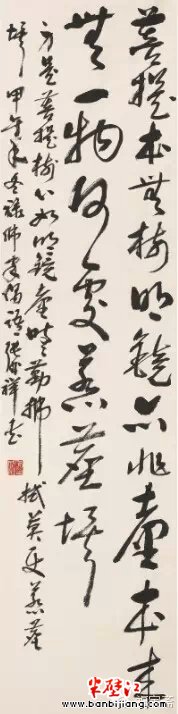 菩提本無樹明鏡亦非臺本來
無一物何處惹塵埃
身是菩提樹心如明鏡臺時時勤拂拭莫更惹塵
埃 甲午年冬錄佛家偈語
半壁江
www.banbijiang.com